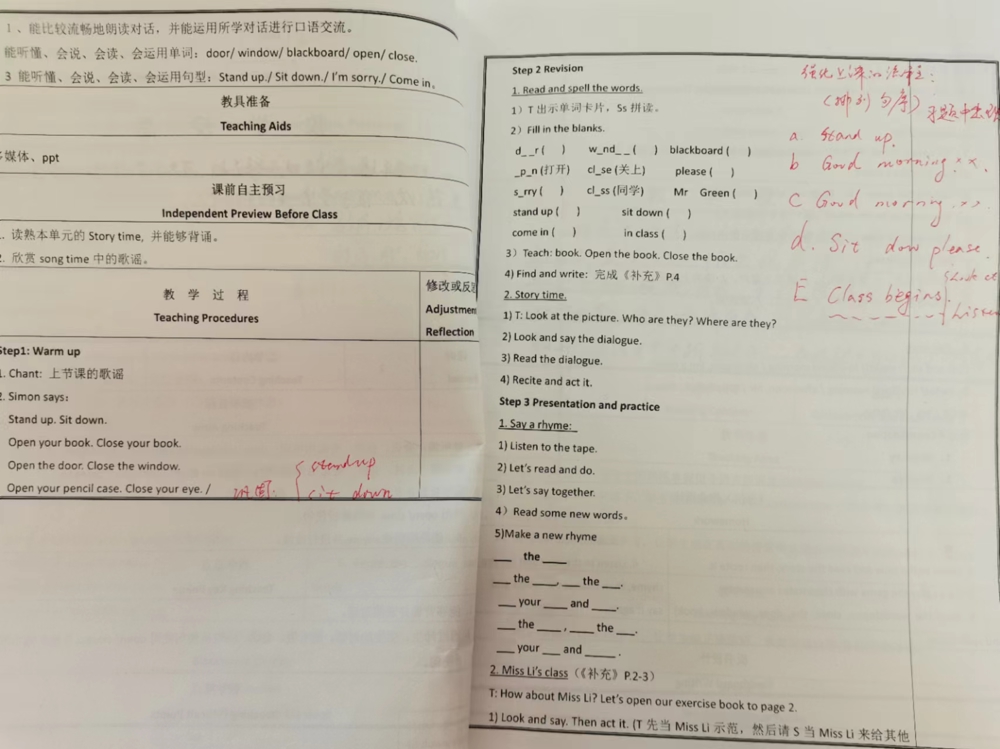 1 、能比较流畅地朗读对话，并能运用所学对话进行口语交流。
能听懂、会说、会读、会运用单词：door/ window/ blackboard/ open/ close.
3 能听懂、会说、会读、会运用句型：Stand up./ Sit down./ I'm sorry./ Come in。
教具准备
Teaching Aids
多媒体、ppt
课前自主预习
Independent Preview Before Class
1. 读熟本单元的 Story time, 并能够背诵。
2. 欣赏 song time 中的歌谣。
教 学 过 程
Teaching Procedures
修改或反
Adjustmen
Reflection
Step1: Warm up
1. Chant: 上节课的歌谣
2. Simon says:
Stand up. Sit down.
Open your book. Close your book.
Open the door. Close the window.
Open your pencil case. Close your eye. /
stand up
sit down
Step 2 Revision
1. Read and spell the words.
1）T 出示单词卡片，Ss 拼读。
2）Fill in the blanks.
d_ _r ( ) w_nd_ _ ( ) blackboard ( )
_p_n (打开) cl_se (关上) please ( )
s_rry ( ) cl_ss (同学) Mr Green ( )
stand up ( ) sit down ( )
come in ( ) in class ( )
3）Teach: book. Open the book. Close the book.
4) Find and write: 完成《补充》P.4
2. Story time.
1) T: Look at the picture. Who are they? Where are they?
2) Look and say the dialogue.
3) Read the dialogue.
4) Recite and act it.
Step 3 Presentation and practice
1. Say a rhyme:
1) Listen to the tape.
2) Let's read and do.
3) Let's say together.
4）Read some new words。
5)Make a new rhyme
___ the ____
___ the ____, ___ the ___.
___ your ____ and ____.
___ the ____ , ____ the ___.
___ your ___ and _____ .
2. Miss Li's class（《补充》P.2-3）
T: How about Miss Li? Let's open our exercise book to page 2.
1) Look and say. Then act it. (T 先当 Miss Li 示范，然后请 S 当 Miss Li 来给其他
强化上课的
(排列句序)
a. Stand up.
b Good morning. ××.
C Good morning, >>.
d. Sit down please.
E Class begins.
Listen